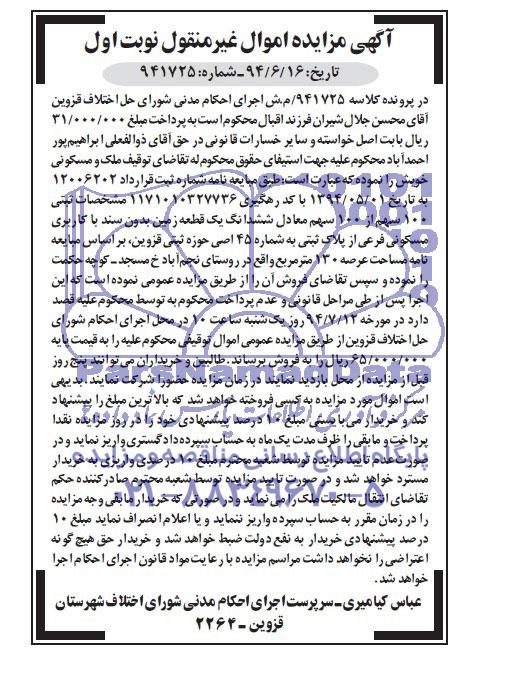 آگهی مزایده اموال غیرمنقول نوبت اول
تاریخ: ۹۴/۶/۱۶ ـ شماره: ۹۴۱۷۲۵
در پرونده کلاسه ۹۴۱۷۲۵/م.ش اجرای احکام مدنی شورای حل اختلاف قزوین
آقای محسن جلال شیران فرزند اقبال محکوم است به پرداخت مبلغ ۳۱/۰۰۰/۰۰۰
ریال بابت اصل خواسته و سایر خسارات قانونی در حق آقای ذوالفعلی ابراهیم‌پور
احمدآباد محکوم علیه جهت استیفای حقوق محکوم له تقاضای توقیف ملک و مسکونی
خویش را نموده که عبارت است: طبق مبایعه نامه شماره ثبت قرارداد ۱۲۰۰۶۲۰۲
به تاریخ ۱۳۹۴/۰۵/۰۱ با کد رهگیری ۱۱۷۱۰۱۰۳۲۷۷۳۶ مشخصات ثبتی
۱۰۰ سهم از ۱۰۰ سهم معادل ششدانگ یک قطعه زمین بدون سند با کاربری
مسکونی فرعی از پلاک ثبتی به شماره ۴۵ اصی حوزه ثبتی قزوین، بر اساس مبایعه
نامه مساحت عرصه ۱۳۰ مترمربع واقع در روستای نجم‌آباد خ مسجد ـ کوچه حکمت
را نموده و سپس تقاضای فروش آن را از طریق مزایده عمومی نموده است که این
اجرا پس از طی مراحل قانونی و عدم پرداخت محکوم به توسط محکوم علیه قصد
دارد در مورخه ۹۴/۷/۱۲ روز یک‌شنبه ساعت ۱۰ در محل اجرای احکام شورای
حل اختلاف قزوین از طریق مزایده عمومی اموال توقیفی محکوم علیه را به قیمت پایه
۶۵/۰۰۰/۰۰۰ ریال را به فروش برساند. طالبین و خریداران می‌توانند پنج روز
قبل از مزایده از محل بازدید نمایند در زمان مزایده حضورا شرکت نمایند. بدیهی
است اموال مورد مزایده به کسی فروخته خواهد شد که بالاترین مبلغ را پیشنهاد
کند و خریدار می‌بایستی مبلغ ۱۰ درصد پیشنهادی خود را در روز مزایده نقدا
پرداخت و مابقی را ظرف مدت یک ماه به حساب سپرده دادگستری واریز نماید و در
صورت عدم تایید مزایده توسط شعبه محترم مبلغ ۱۰ درصدی واریزی به خریدار
مسترد خواهد شد و در صورت تایید مزایده توسط شعبه محترم صادرکننده حکم
تقاضای انتقال مالکیت ملک را می‌نماید و در صورتی که خریدار مابقی وجه مزایده
را در زمان مقرر به حساب سپرده واریز ننماید و یا اعلام انصراف نماید مبلغ ۱۰
درصد پیشنهادی خریدار به نفع دولت ضبط خواهد شد و خریدار حق هیچ گونه
اعتراضی را نخواهد داشت مراسم مزایده با رعایت مواد قانون اجرای احکام اجرا
خواهد شد.
عباس کیامیری ـ سرپرست اجرای احکام مدنی شورای اختلاف شهرستان
قزوین ـ ۲۲۶۴
ParsNamadData
پایگاه اطلاع رسانی مناقصه و مزایده
۰۲۱-۸۸۳۴۹۶۷۰-۵